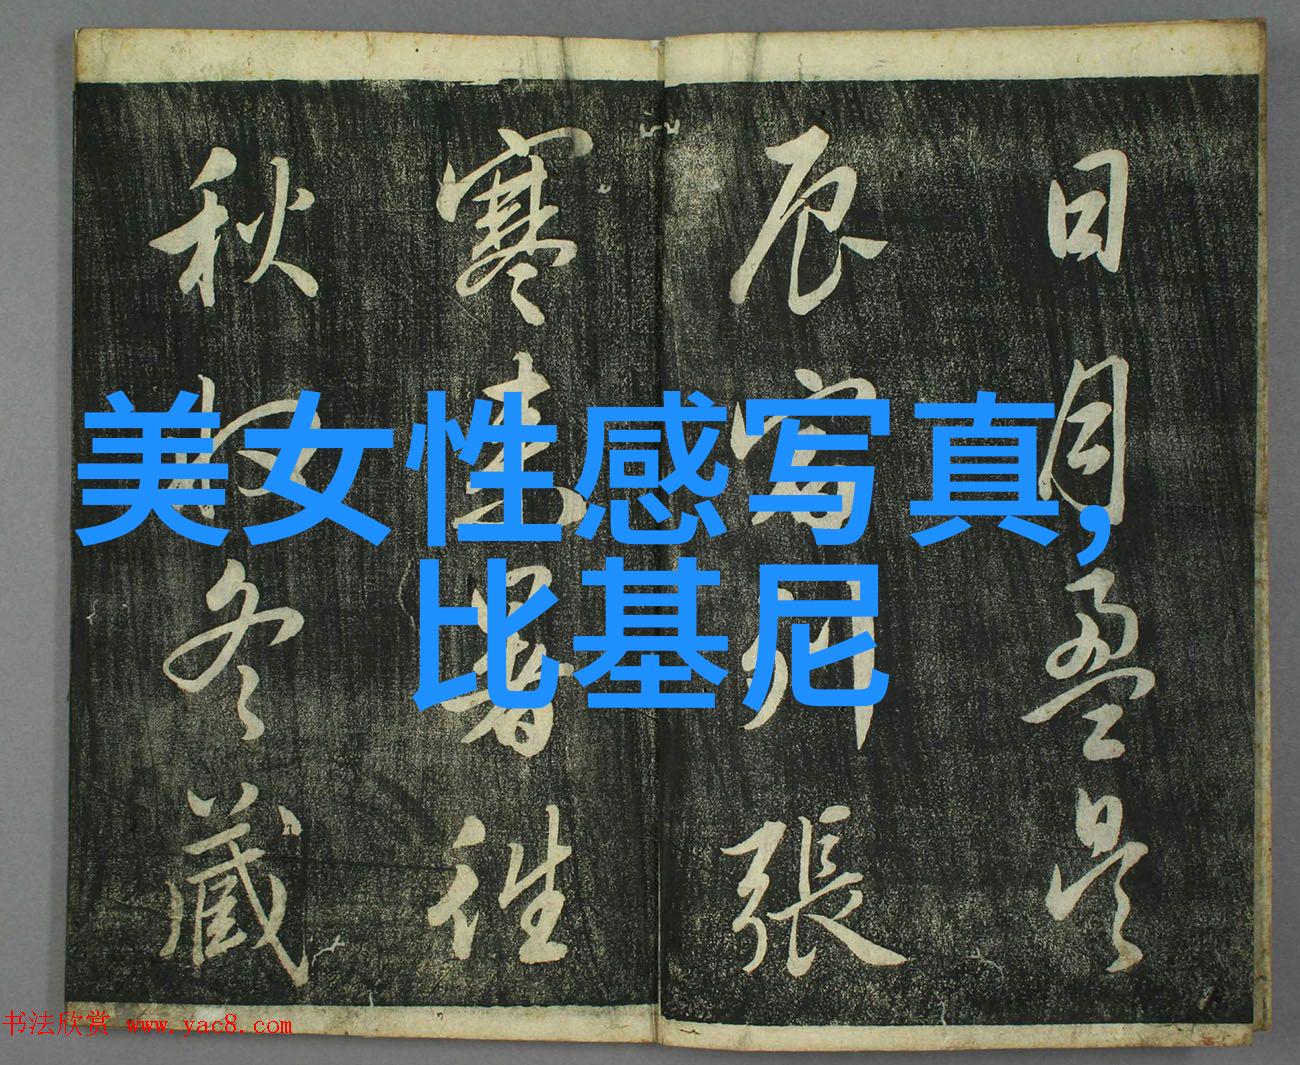 日月盈昃
辰宿列張
寒来暑往
秋收冬藏
美女性感写真,
比基尼
书法欣赏 www.yac8.com